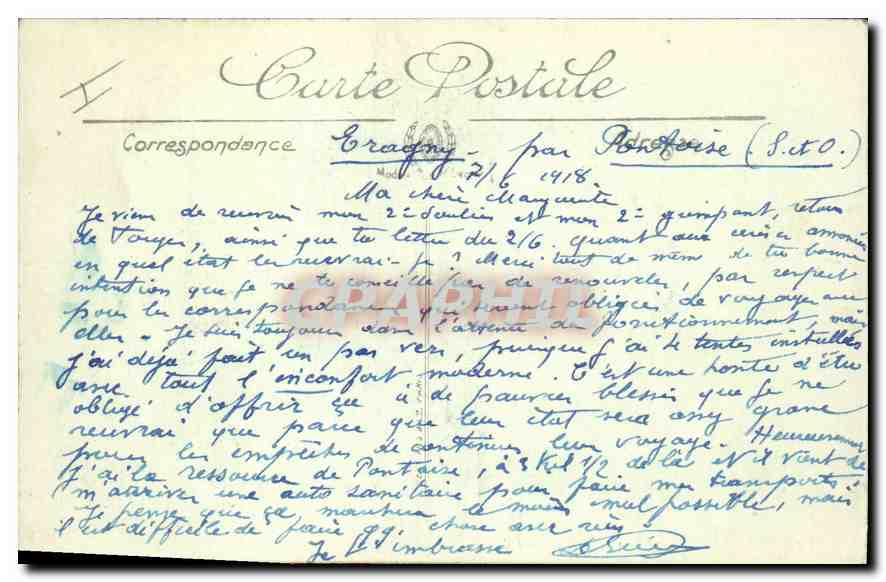 Carte Postale
Correspondance Adresse
Eragny - par Pontoise (S. et O.)
7/6 1918
Ma chère Marguerite
Je viens de recevoir mon 2e soulier et mon 2e grimpant, retour
de Troyes, ainsi que ta lettre du 2/6. Quant aux cerises annoncées
en quel état les recevrai-je ? Merci tout de même de ta bonne
intention que je ne te conseille pas de renouveler, par respect
pour les correspondances qui seront obligées de voyager avec
elles. Je suis toujours dans l'attente de fonctionnement, mais
j'ai déjà fait un pas vers, puisque j'ai 4 tentes installées
avec tout l'inconfort moderne. C'est une honte d'être
obligé d'offrir ça à de pauvres blessés que je ne
recevrai que parce que leur état sera assez grave
pour les empêcher de continuer leur voyage. Heureusement
j'ai la ressource de Pontoise, à 3 Kil 1/2 de là et il vient de
m'arriver une auto sanitaire pour faire mes transports.
Je pense que ça marchera le moins mal possible, mais
il est difficile de faire qq. chose avec rien.
Je t'embrasse